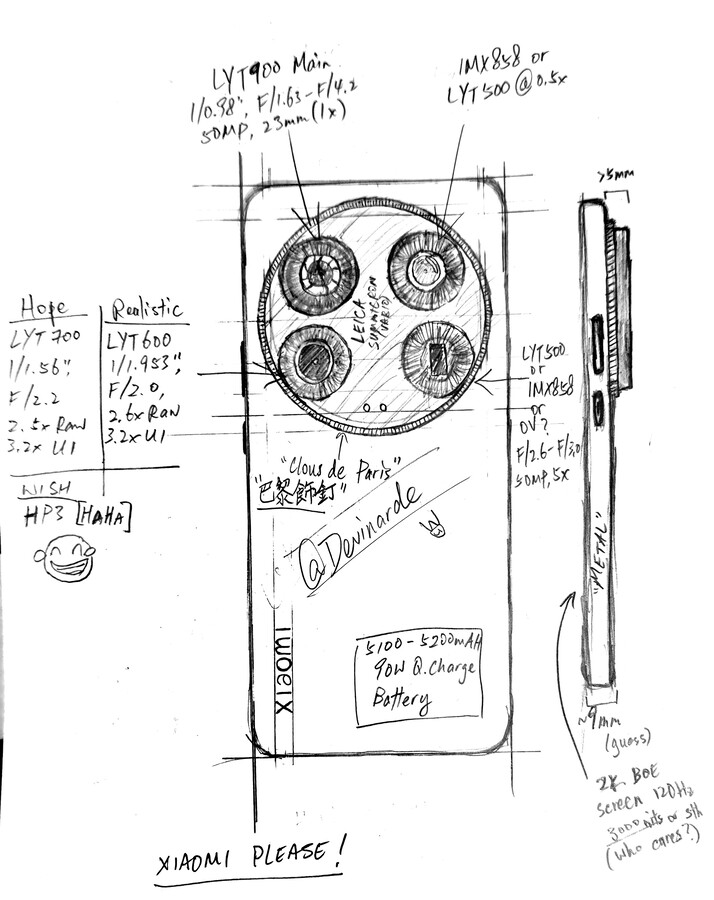 LYT900 Main
1/0.98", F/1.63-F/4.2
50MP, 23mm(1x)
IMX858 or
LYT500 @0.5x
>5mm
Hope
LYT700
1/1.56",
F/2.2
2.5x Raw
3.2x UI
Realistic
LYT600
1/1.953",
F/2.0,
2.6x Raw
3.2x UI
WISH
HP3 [HAHA]
LEICA
SUMMICRON
VARIO
LYT500
or
IMX858
or
OV?
F/2.6-F/3.0
50MP, 5x
"Clous de Paris"
"巴黎飾釘"
@Devinarde
XIAOMI
5100-5200mAH
90W Q.Charge
Battery
"METAL"
~9mm
(guess)
2K BOE
screen 120Hz
3000 nits or sth
(who cares?)
XIAOMI PLEASE!